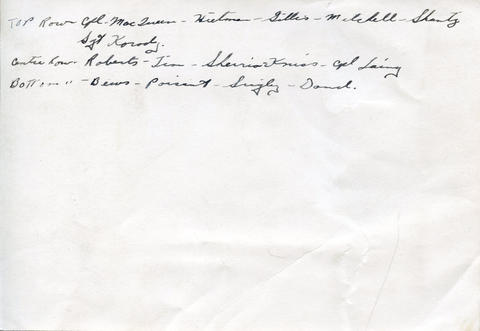 TOP Row Cpl. MacQueen - Hietman - Gillis - Mitchell - Shantz
Sgt Korody.
Centre Row Roberts - Tim - Sherrior Kniss - Cpl Laing
Bottom " - Bews - Poisant - Srigley - Dand.